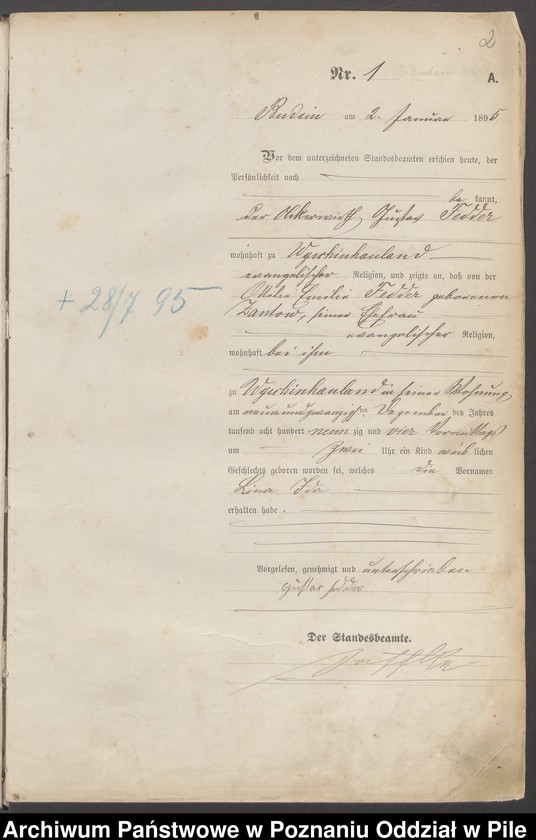 2
Nr. 1
A.
Budsin am 2. Januar 1895
Vor dem unterzeichneten Standesbeamten erschien heute, der
Persönlichkeit nach
be kannt,
der Ackerwirth Gustav Fedder
wohnhaft zu Wyschinhauland
evangelischer Religion, und zeigte an, daß von der
Ottilie Emilie Fedder geborenen
Zantow, seiner Ehefrau
evangelischer Religion,
wohnhaft bei ihm
zu Wyschinhauland in seiner Wohnung
am neunundzwanzigten Dezember des Jahres
tausend acht hundert neun zig und vier Vormittags
um zwei Uhr ein Kind weib lichen
Geschlechts geboren worden sei, welches die Vornamen
Lina Ida
erhalten habe.
Vorgelesen, genehmigt und unterschrieben
Gustav Fedder
Der Standesbeamte.
+ 28/7 95
Archiwum Państwowe w Poznaniu Oddział w Pile